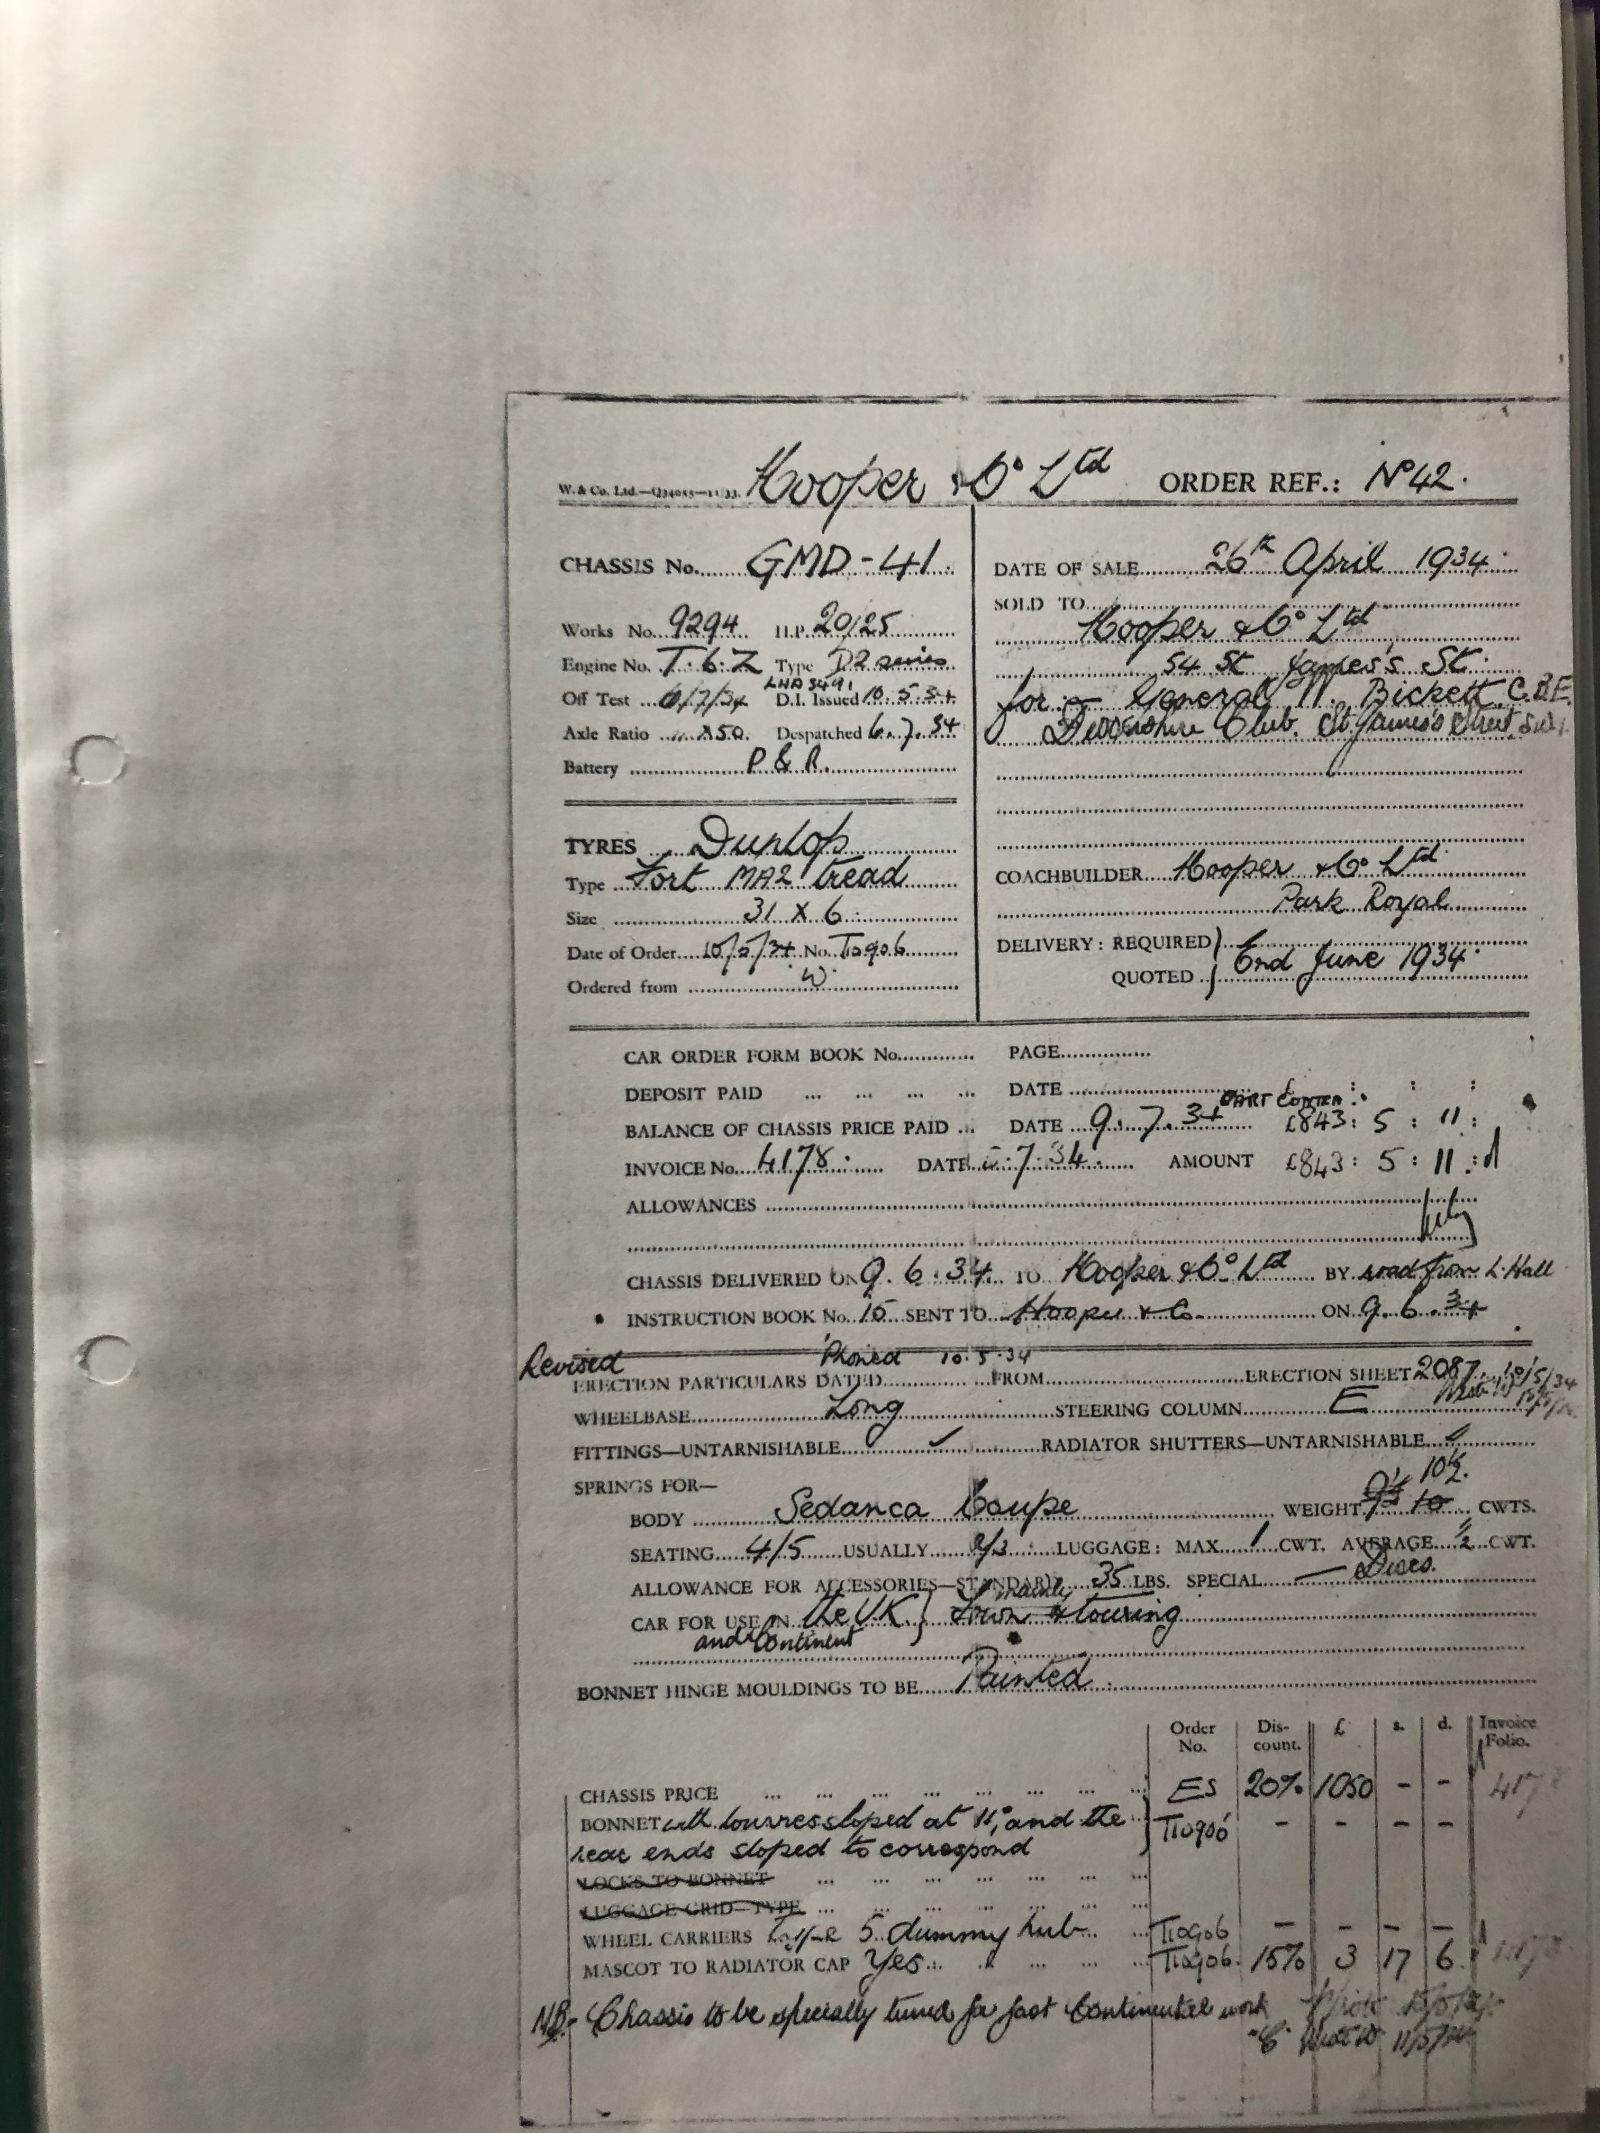 W. & Co. Ltd. Hooper & Co Ltd ORDER REF.: No 42.
CHASSIS No. GMD-41
Works No. 9294 H.P. 20/25
Engine No. T.6.Z Type D2 series
LHA 3491
Off Test /7/34 D.I. Issued 10.5.34
Axle Ratio Despatched 6.7.34
Battery P & R.
DATE OF SALE 26th April 1934
SOLD TO
Hooper & Co Ltd
54 St James's St.
for :- General W. Bickett C.B.E.
Devonshire Club. St. James's Street, S.W.1.
TYRES Dunlop
Type Fort MA2 tread
Size 31 x 6
Date of Order 10/5/34 No.
Ordered from W.
COACHBUILDER Hooper & Co Ltd.
Park Royal
DELIVERY: REQUIRED
QUOTED } End June 1934.
CAR ORDER FORM BOOK No. PAGE
DEPOSIT PAID ... ... ... ... DATE £ : : :
PART CONTRA
BALANCE OF CHASSIS PRICE PAID ... DATE 9.7.34 £843 : 5 : 11 :
INVOICE No. 4178. DATE 5.7.34. AMOUNT £843 : 5 : 11 : d
ALLOWANCES
CHASSIS DELIVERED ON 9.6.34. TO Hooper & Co Ltd BY road from L. Hall
INSTRUCTION BOOK No. 15 SENT TO Hooper & Co. ON 9.6.34
Revised Phoned 10.5.34
ERECTION PARTICULARS DATED FROM ERECTION SHEET 2087 10/5/34
WHEELBASE Long STEERING COLUMN E
FITTINGS—UNTARNISHABLE ✓ RADIATOR SHUTTERS—UNTARNISHABLE ✓
SPRINGS FOR— 10½.
BODY Sedanca Coupe WEIGHT 10 CWTS.
SEATING 4/5 USUALLY 2/3 LUGGAGE: MAX. 1 CWT. AVERAGE ½ CWT.
ALLOWANCE FOR ACCESSORIES—STANDARD 35 LBS. SPECIAL — Discs.
mainly
CAR FOR USE IN the U.K. } Town & touring
and Continent
BONNET HINGE MOULDINGS TO BE Painted
Order No. Discount. £ s. d. Invoice Folio.
CHASSIS PRICE ... ... ... ... ... ... ... ES 20% 1050 - - 417
BONNET with louvres sloped at 11°, and the - - - -
rear ends sloped to correspond
LOCKS TO BONNET ... ... ... ... ... ... ...
LUGGAGE GRID—TYPE ... ... ... ... ... ... ...
WHEEL CARRIERS Type 5 dummy hub - - - -
MASCOT TO RADIATOR CAP Yes 15% 3 17 6
NB:- Chassis to be specially tuned for fast Continental work